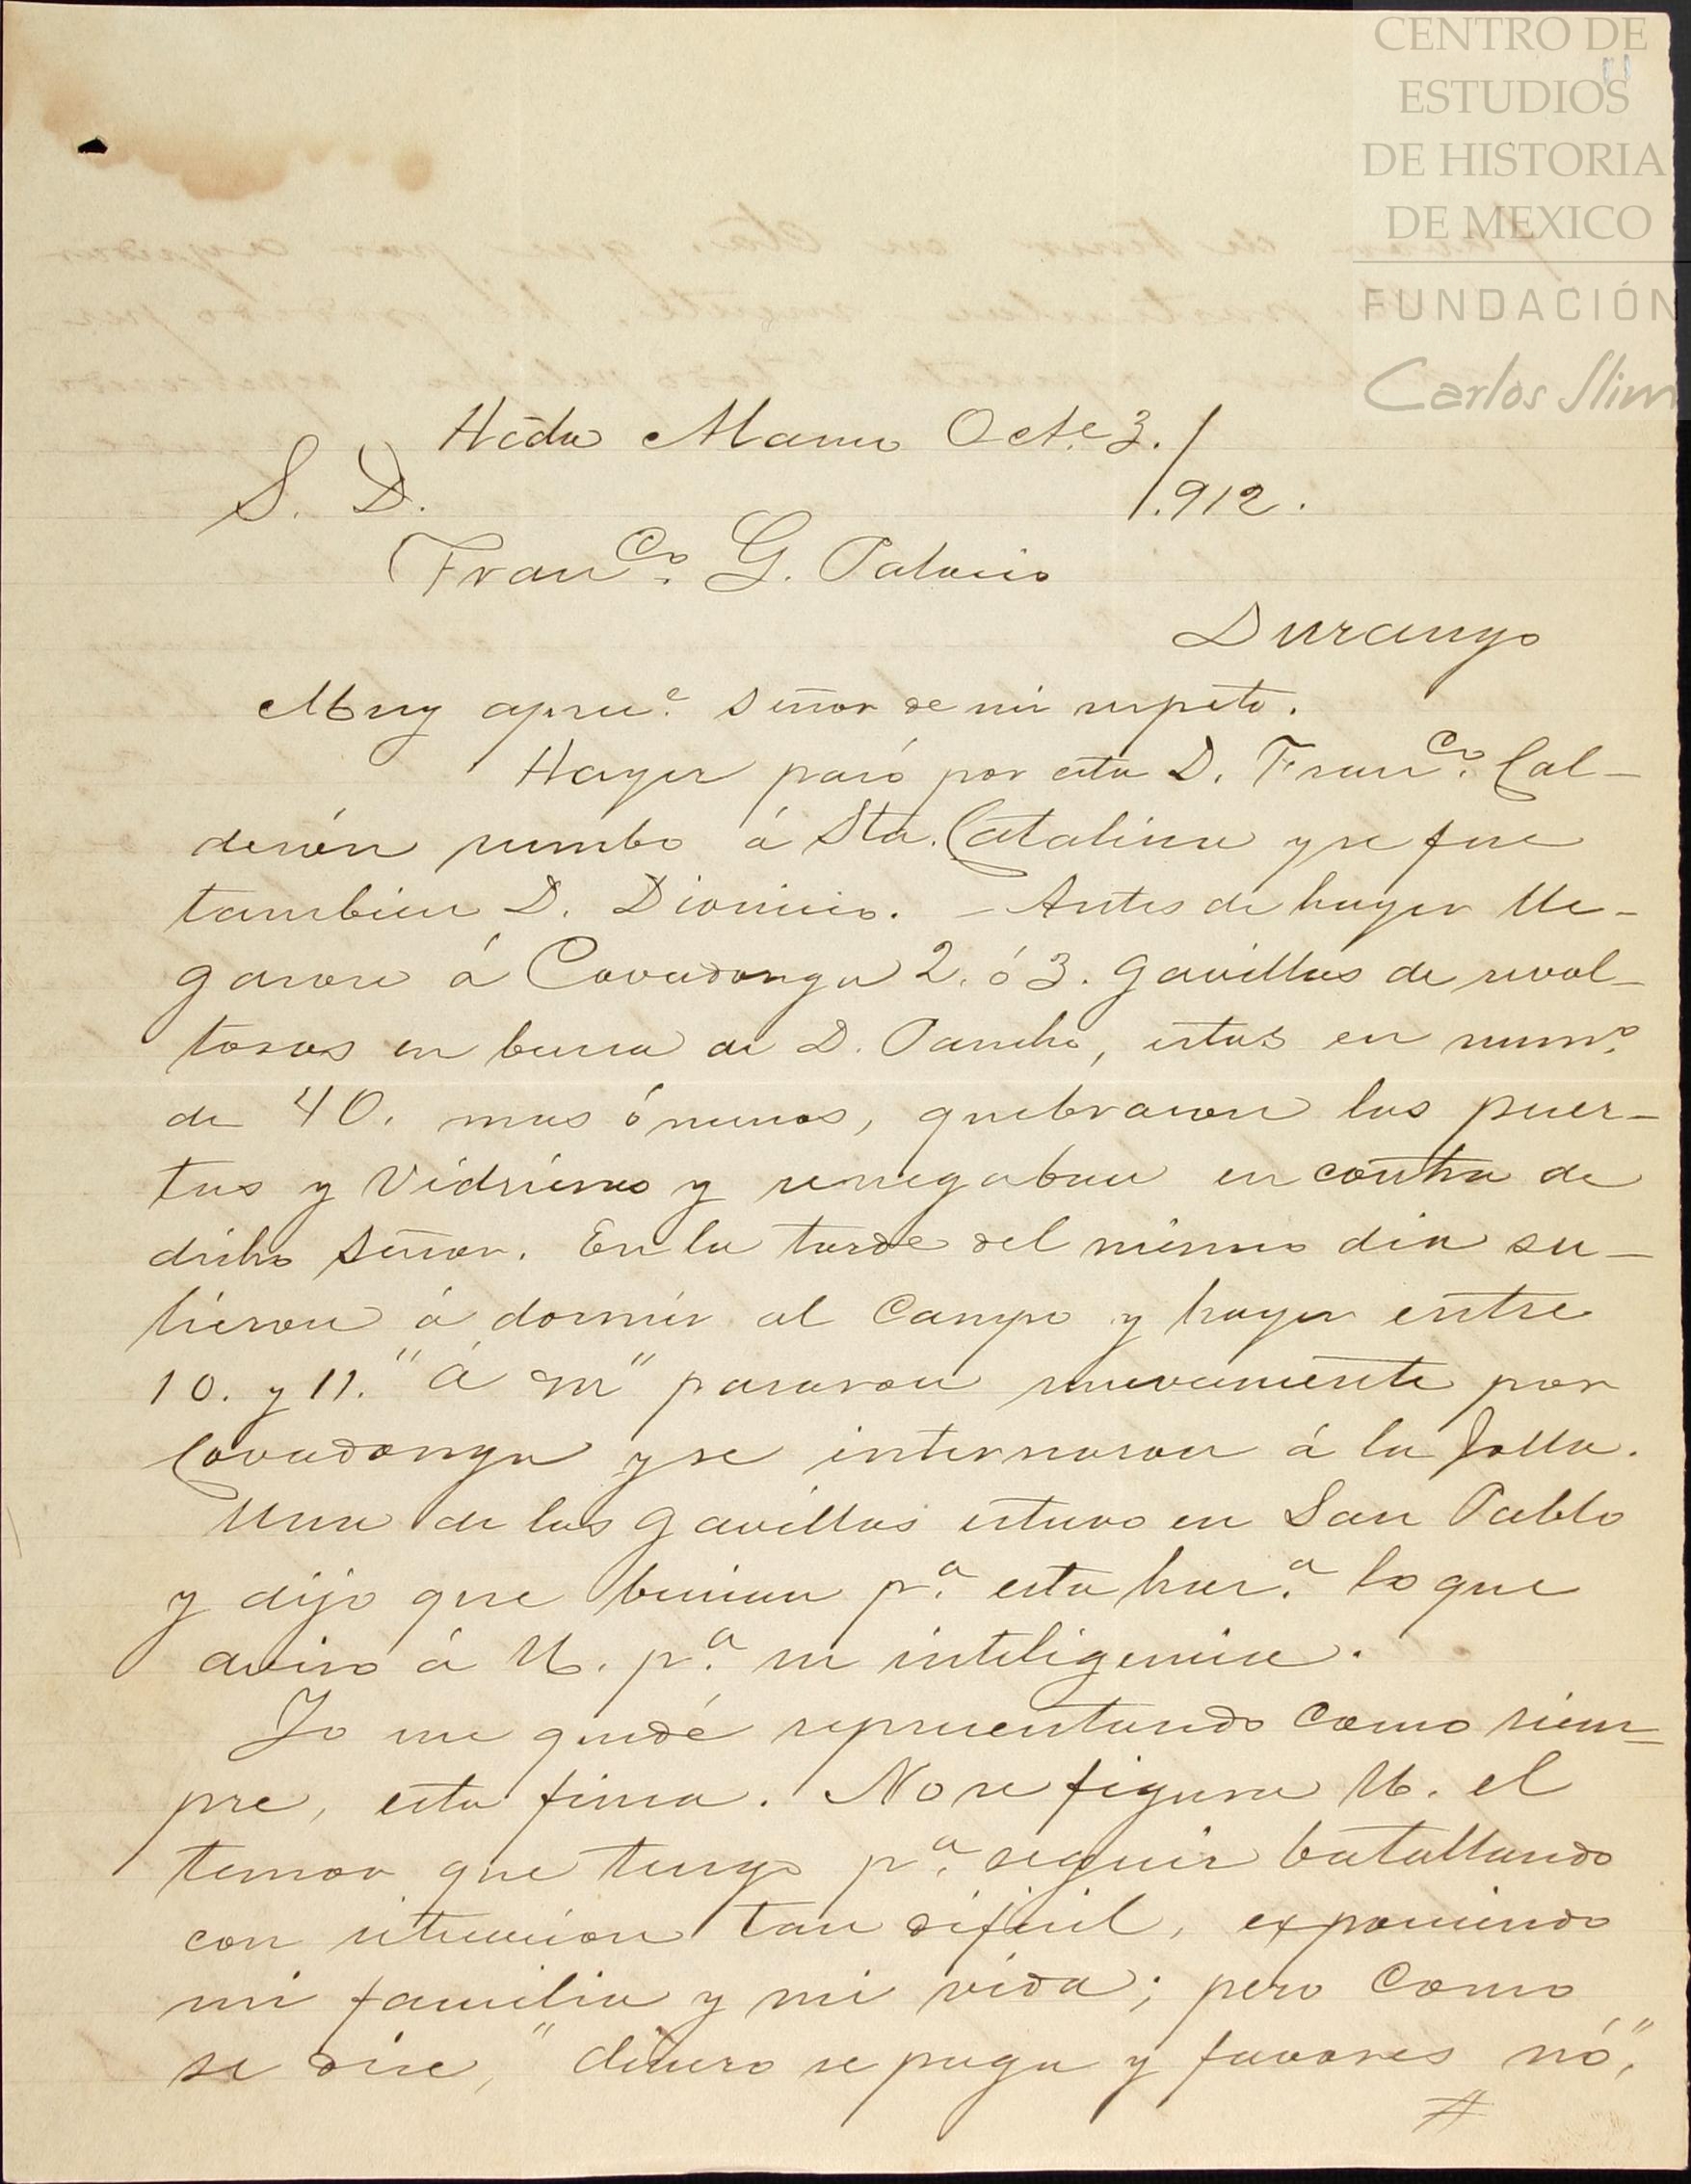 CENTRO DE
ESTUDIOS
DE HISTORIA
DE MEXICO
FUNDACIÓN
Carlos Slim
Hcda Marra Octe 3./
S. D. 1.912.
Franco. G. Palacio
Durango
Muy aprece. Señor de mi respeto.
Hayer pasó por esta D. Franco. Cal-
derón rumbo á Sta. Catalina y se fue
tambien D. Dionicio. – Antes de hayer lle-
garon á Covadonga 2. ó 3. gavillas de revol-
tosos en busca de D. Pancho, estas en numo.
de 40. mas ó menos, quebraron las puer-
tas y vidrieras y renegaban en contra de
dicho Señor. En la tarde del mismo dia sa-
lieron á dormir al Campo y hayer entre
10. y 11. "á m" pasaron nuevamente por
Covadonga y se internaron á la Jolla.
Una de las gavillas estuvo en San Pablo
y dijo que benian pa. esta haza. lo que
aviso á U. pa. su inteligencia.
Yo me quedé representando como siem=
pre, esta finca. No se figura U. el
temor que tengo pa. seguir batallando
con situacion tan dificil, exponiendo
mi familia y mi vida; pero como
se dice, "dinero se paga y favores nó",
#